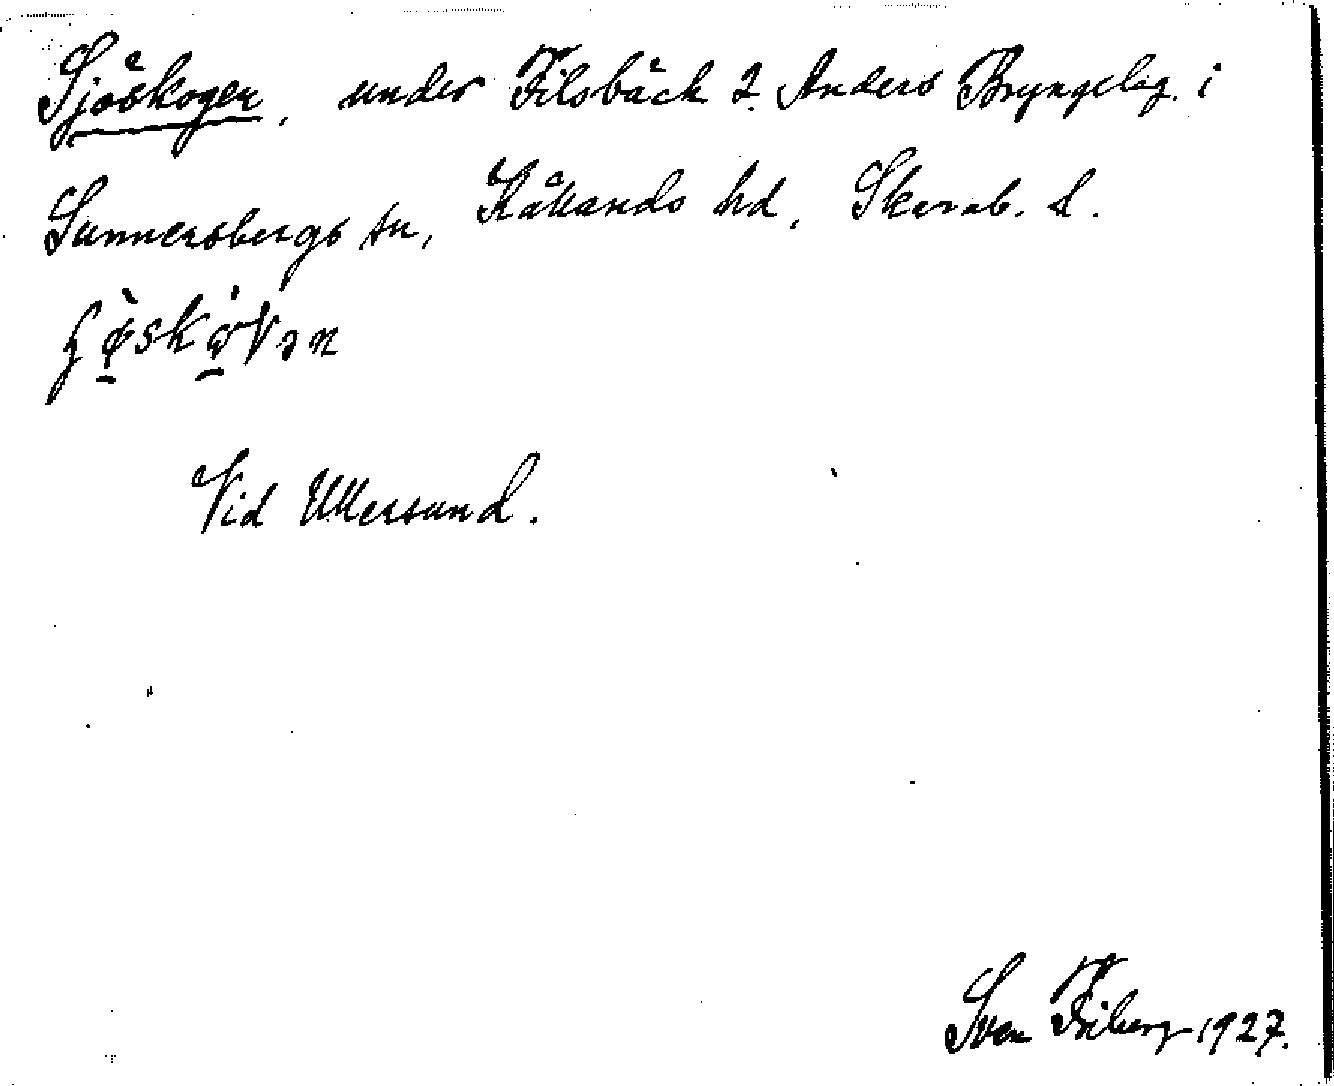 Sjöskogen, under Filsbäck 2. Anders Bryngelsg. i
Sunnersbergs sn, Kållands hd, Skarab. l.
Vid Ullersund.
Sven Friberg 1927.